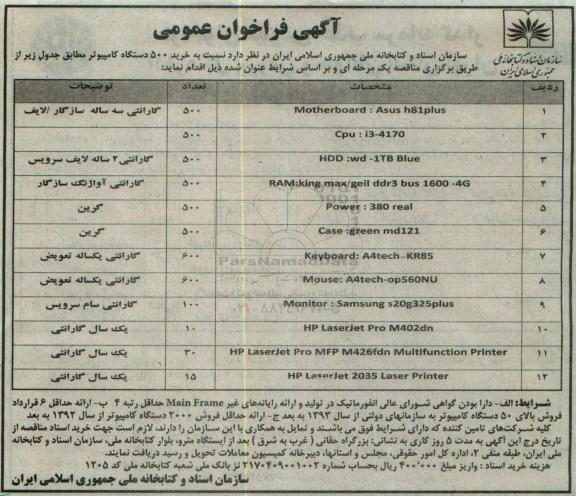 آگهی فراخوان عمومی
سازمان اسناد و کتابخانه ملی
جمهوری اسلامی ایران
سازمان اسناد و کتابخانه ملی جمهوری اسلامی ایران در نظر دارد نسبت به خرید ۵۰۰ دستگاه کامپیوتر مطابق جدول زیر از
طریق برگزاری مناقصه یک مرحله ای و بر اساس شرایط عنوان شده ذیل اقدام نماید:
ردیف مشخصات تعداد توضیحات
۱ Motherboard : Asus h81plus ۵۰۰ گارانتی سه ساله سازگار /لایف
۲ Cpu : i3-4170 ۵۰۰
۳ HDD :wd -1TB Blue ۵۰۰ گارانتی ۲ ساله لایف سرویس
۴ RAM:king max/geil ddr3 bus 1600 -4G ۵۰۰ گارانتی آواژنگ سازگار
۵ Power : 380 real ۵۰۰ گرین
۶ Case :green md121 ۵۰۰ گرین
۷ Keyboard: A4tech-KR85 ۶۰۰ گارانتی یکساله تعویض
۸ Mouse: A4tech-op560NU ۶۰۰ گارانتی یکساله تعویض
۹ Monitor : Samsung s20g325plus ۱۰۰ گارانتی سام سرویس
۱۰ HP LaserJet Pro M402dn ۱۰ یک سال گارانتی
۱۱ HP LaserJet Pro MFP M426fdn Multifunction Printer ۳۰ یک سال گارانتی
۱۲ HP LaserJet 2035 Laser Printer ۱۵ یک سال گارانتی
ParsNamadData
شرایط: الف- دارا بودن گواهی شورای عالی انفورماتیک در تولید و ارائه رایانه‌های غیر Main Frame حداقل رتبه ۴ ب- ارائه حداقل ۶ قرارداد
فروش بالای ۵۰ دستگاه کامپیوتر به سازمانهای دولتی از سال ۱۳۹۳ به بعد ج- ارائه حداقل فروش ۲۰۰۰ دستگاه کامپیوتر از سال ۱۳۹۳ به بعد
کلیه شرکت‌های تامین کننده که دارای شرایط فوق می باشند و تمایل به همکاری با این سازمان را دارند، لازم است جهت خرید اسناد مناقصه از
تاریخ درج این آگهی به مدت ۵ روز کاری به نشانی: بزرگراه حقانی (غرب به شرق) بعد از ایستگاه مترو، بلوار کتابخانه ملی، سازمان اسناد و کتابخانه
ملی ایران، طبقه منفی ۲، اداره کل امور حقوقی، مجلس و استانها، دبیرخانه کمیسیون معاملات تحویل و رسید دریافت نمایند.
هزینه خرید اسناد : واریز مبلغ ۴۰۰٬۰۰۰ ریال بحساب شماره ۲۱۷۰۴۰۹۰۰۱۰۰۲ نز بانک ملی شعبه کتابخانه ملی کد ۱۲۰۵
سازمان اسناد و کتابخانه ملی جمهوری اسلامی ایران